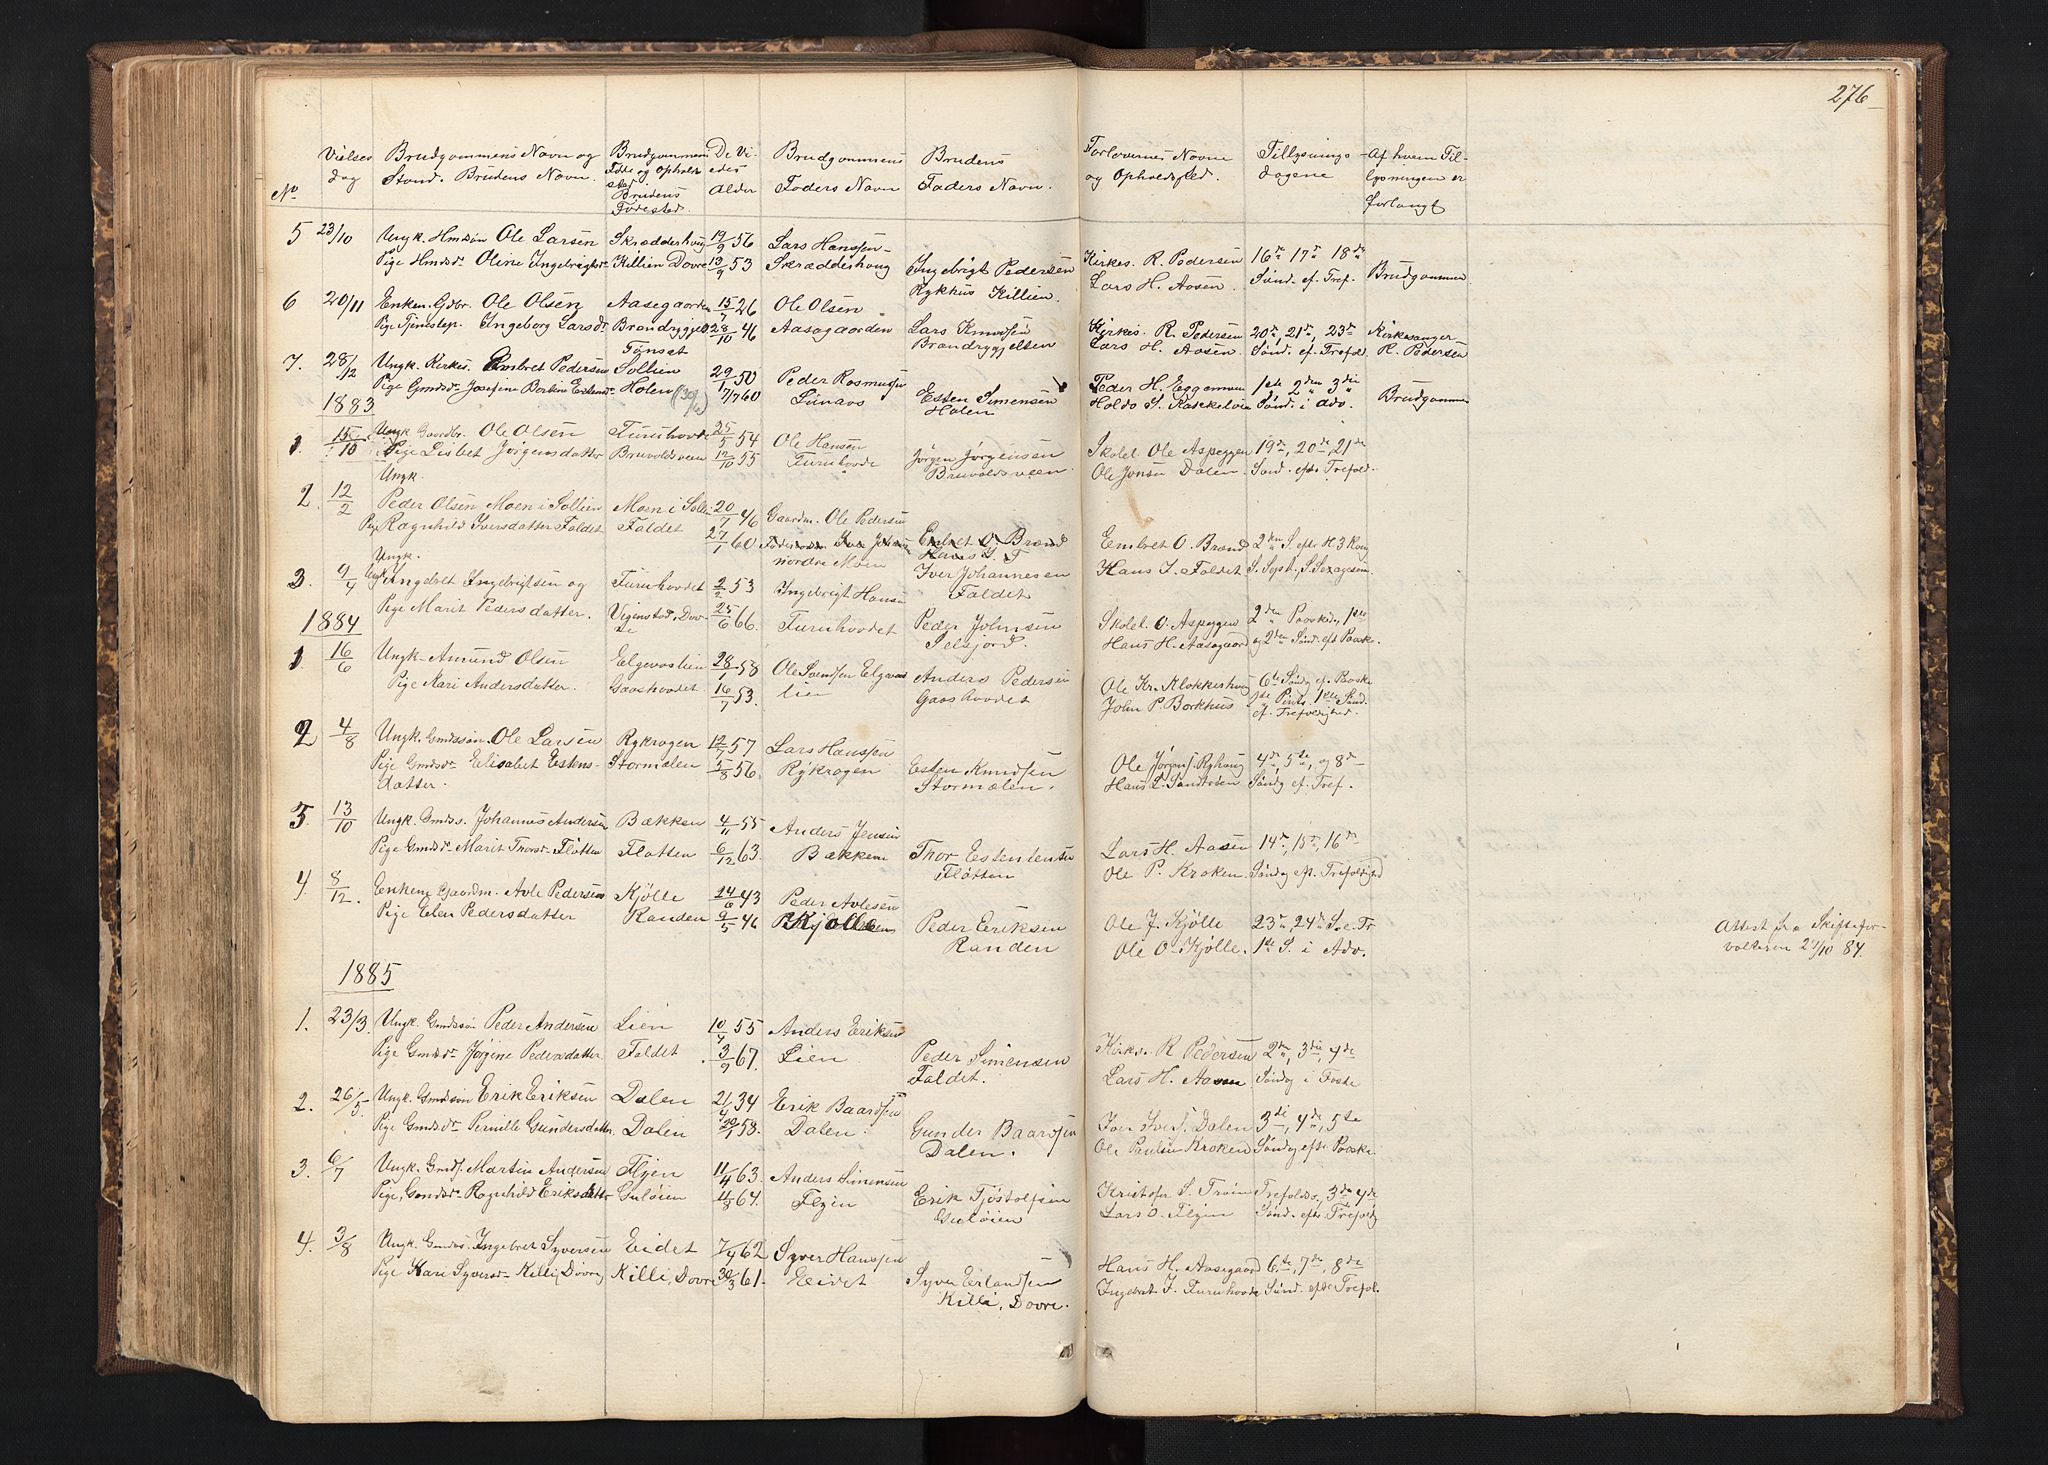 276
No
Vielses dag
Brudgommens Navn og Stand. Brudens Navn.
Brudgommens Føde og Opholdssted Brudens Fødested.
De Viedes Alder
Brudgommens Faders Navn
Brudens Faders Navn.
Forlovernes Navne og Opholdssted.
Tillysnings dagene
Af hvem Tillysningen er forlangt
5 23/10 Ungk. Hmdsøn Ole Larsen Skrædderhaug 19/9 56 Lars Hanssen
Pige Hmdsd. Oline Ingebrigtsdr Killien Dovre 13/9 53 Skrædderhaug Ingebrigt Pedersen Rykhus Killien.
Kirkes. R. Pedersen 16de 17de 18de
Lars H. Aasen. Sønd. ef. Tref. Brudgommen
6 20/11 Enkem. Gdbr. Ole Olsen Aasegaarden 15/7 26 Ole Olsen
Pige Tjenestep. Ingeborg Larsdr Brandryggjell 28/10 46 Aasegaarden Lars Knudsen Brandryggjelten
Kirkes. R. Pedersen 20de, 21de, 23de Kirkesanger
Lars H. Aasen. Sønd. ef. Trefol. R. Pedersen
Tønset
7. 28/12 Ungk. Kirkes. Embret Pedersen Sollien 29/1 50 Peder Rasmussen
Pige Gmdsd. Josefine Bertine Estensd. Holen (30/6) 7/7 60 Esten Simensen Holen
Peder H. Eggemoen 1ste 2den 3die
Sønd. i Adv. Brudgommen
1883
1. 15/10 Ungk. Gaardbr. Ole Olsen Furuhovde 25/5 54 Ole Hansen
Pige Lisbet Jørgensdatter Bruvoldsveen 12/10 55 Furuhovde Jørgen Jørgensen Bruvoldsveen.
Skolel. Ole Aspeggen 19de, 20de 21de
Ole Jonsen Dalen. Sønd. efter Trefold.
Ungk.
2. 12/2 Peder Olsen Moen i Sollien Moen i Solli 20/7 46 Gaardm. Ole Pedersen
Pige Ragnhild Iversdatter Faldet Faldet 27/1 60 nordre Moen Embret O. Brænd Hans I. F Iver Johannesen Faldet
Embret O. Brænd 2den S. efter H. 3 Kong
Hans I. Faldet S. Sept., S. Sexagesim
Ungk.
3. 9/4 Ungk Ingebret Ingebrigtsen og Furuhovdet 2/2 53 Ingebrigt Hansen
Pige Marit Pedersdatter. Vigenstad, Dovre 25/6 66. Furuhovdet Peder Johnsen Selsjord.
Skolel. O. Aspeggen 2den Paaskedag, 1ste
Hans H. Aasegaard og 2den Sønd. eft Paaske.
1884
1 16/6 Ungk. Amund Olsen Elgevaslien 28/1 58 Ole Svendsen Elgevaslien
Pige Kari Andersdatter. Gaashovdet 16/7 53. Anders Pedersen Gaashovdet
Ole Kr. Klokkerhaug 6te Søndg ef. Paaske
John P. Borkhus 1ste Pints. 1ste Sønd. ef. Trefoldighed.
2 4/8 Ungk. Gmdssøn. Ole Larsen Rykrogen 12/7 57 Lars Hanssen
Pige Gmdsdr Elisabet Estens- Stormælen 5/8 56. Rykrogen Esten Knudsen
datter. Stormælen.
Ole Jørgens. Ryhaug 4de, 5te, og 8de
Hans L. Sandtrøen Søndg ef. Tref.
3. 13/10 Ungk. Gmdss. Johannes Andersen Bækken 4/11 55 Anders Jensen
Pige Gmdsdr Marit Thorsdr Fløtten Fløtten 6/12 63. Bækken Thor Estentensen Fløtten
Lars H. Aasen 14de, 15de, 16de
Ole P. Kroken Søndag eft. Trefoldighed
4. 8/12. Enkem Gaardm. Avle Pedersen Kjølle 24/6 43 Peder Avlesen
Pige Elen Pedersdatter Randen 9/5 46 Kjølle Peder Eriksen Randen
Ole J. Kjølle 23de, 24de S. e. Tr.
Ole O. Kjølle. 1ste S. i Adv.
Attest fra Skifteforvalteren 27/10 84.
1885
1. 23/3. Ungk. Gmdssøn Peder Andersen Lien 10/4 55 Anders Eriksen
Pige Gmdsdr Jørgine Pedersdatter. Faldet 3/9 67. Lien Peder Simensen Faldet.
Kirkes. R Pedersen 2den, 3die, 4de
Lars H. Aasen Søndg i Faste
2. 26/5. Ungk. Gmdssøn Erik Eriksen Dalen 21/4 34 Erik Baardsen
Pige Gmdsdr Pernille Gundersdatter Dalen 20/1 58. Dalen. Gunder Baardsen Dalen.
Iver Ivers. Dalen 3die, 4de, 5te
Ole Paulsen Kroken Søndag efter Paaske
3. 6/7 Ungk. Gmds. Martin Andersen Flyen 11/4 63. Anders Simensen
Pige, Gmdsdr Ragnhild Eriksdatter Guløien 11/8 64. Flyen Erik Tjøstolfsen Guløien
Kristofer S. Trøen Trefoldg., 3die 4de
Lars O. Flyen Sønd. efter Trefoldig
4. 3/8 Ungk. Gmdss. Ingebret Syversen Eidet 7/4 62 Syver Hanssen
Pige Kari Syversdr Killi, Dovre Killi, Dovre 30/3 61. Eidet Syver Erlandsen Killi, Dovre.
Hans H. Aasegaard 6te, 7de, 8de
Ingebret I. Furuhovde Sønd. efter Trefol.